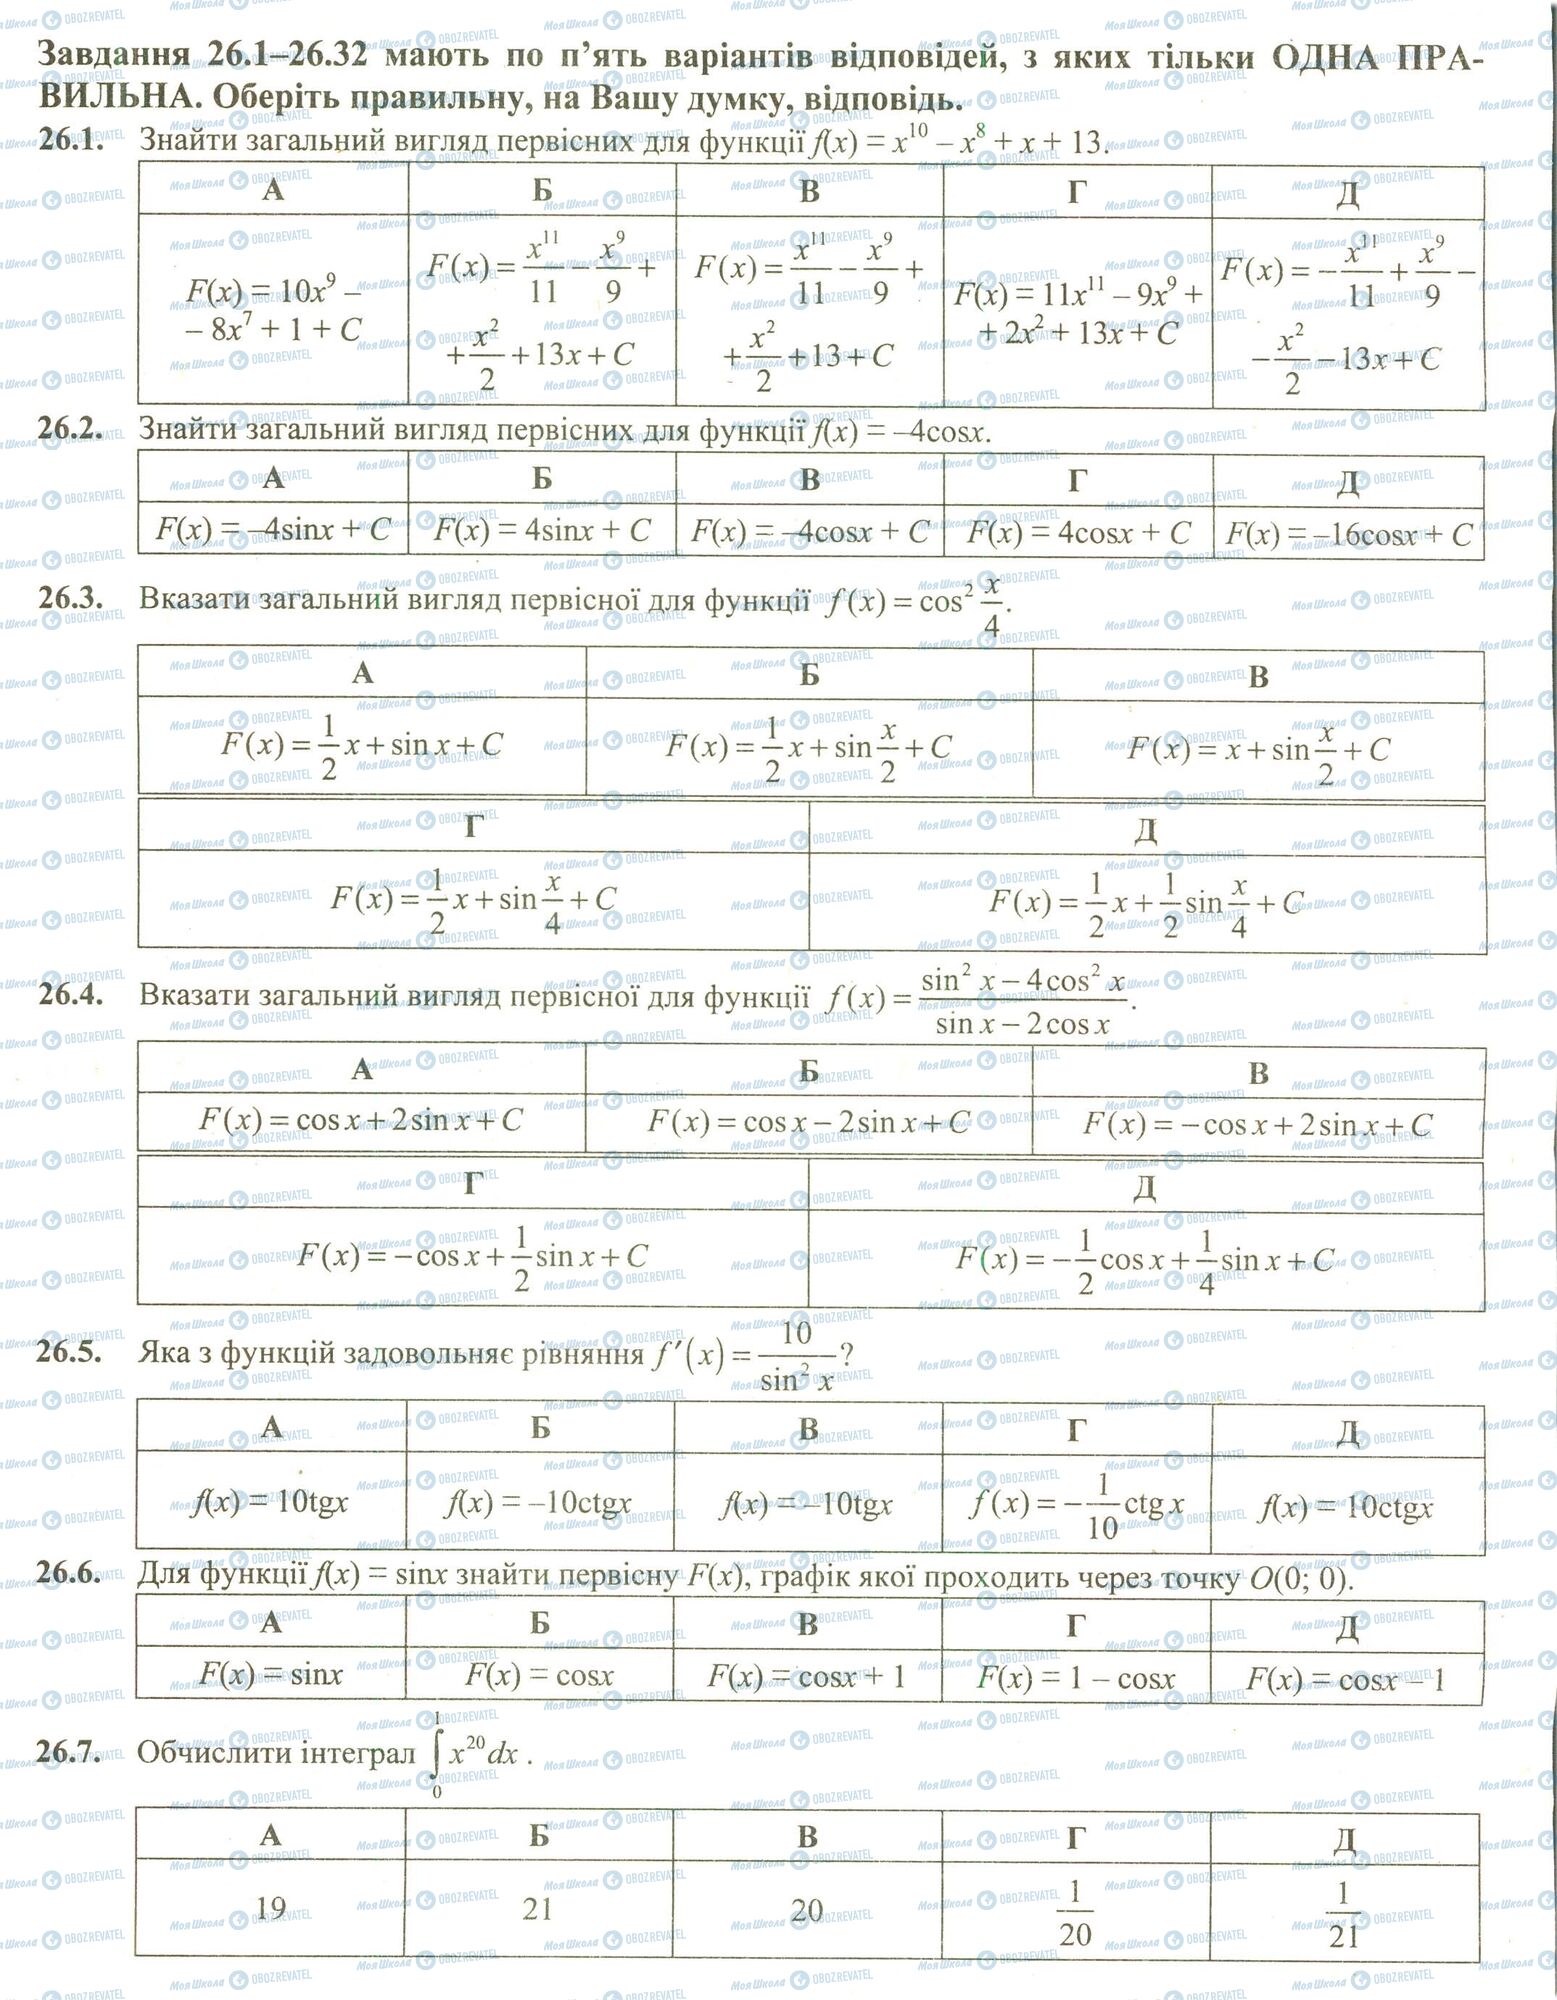 Завдання 26.1–26.32 мають по п’ять варіантів відповідей, з яких тільки ОДНА ПРА-
ВИЛЬНА. Оберіть правильну, на Вашу думку, відповідь.
26.1. Знайти загальний вигляд первісних для функції f(x) = x¹⁰ – x⁸ + x + 13.
А Б В Г Д
А: F(x) = 10x⁹ –
– 8x⁷ + 1 + C
Б: F(x) = x¹¹/11 – x⁹/9 +
+ x²/2 + 13x + C
В: F(x) = x¹¹/11 – x⁹/9 +
+ x²/2 + 13 + C
Г: F(x) = 11x¹¹ – 9x⁹ +
+ 2x² + 13x + C
Д: F(x) = – x¹¹/11 + x⁹/9 –
– x²/2 – 13x + C
26.2. Знайти загальний вигляд первісних для функції f(x) = –4cosx.
А Б В Г Д
F(x) = –4sinx + C F(x) = 4sinx + C F(x) = –4cosx + C F(x) = 4cosx + C F(x) = –16cosx + C
26.3. Вказати загальний вигляд первісної для функції f(x) = cos² x/4.
А Б В
F(x) = 1/2 x + sin x + C F(x) = 1/2 x + sin x/2 + C F(x) = x + sin x/2 + C
Г Д
F(x) = 1/2 x + sin x/4 + C F(x) = 1/2 x + 1/2 sin x/4 + C
26.4. Вказати загальний вигляд первісної для функції f(x) = (sin² x – 4cos² x)/(sin x – 2cos x).
А Б В
F(x) = cos x + 2sin x + C F(x) = cos x – 2sin x + C F(x) = –cos x + 2sin x + C
Г Д
F(x) = –cos x + 1/2 sin x + C F(x) = –1/2 cos x + 1/4 sin x + C
26.5. Яка з функцій задовольняє рівняння f′(x) = 10/sin² x?
А Б В Г Д
f(x) = 10tgx f(x) = –10ctgx f(x) = –10tgx f(x) = –1/10 ctg x f(x) = 10ctgx
26.6. Для функції f(x) = sinx знайти первісну F(x), графік якої проходить через точку O(0; 0).
А Б В Г Д
F(x) = sinx F(x) = cosx F(x) = cosx + 1 F(x) = 1 – cosx F(x) = cosx – 1
26.7. Обчислити інтеграл ∫₀¹ x²⁰dx .
А Б В Г Д
19 21 20 1/20 1/21
МояШкола OBOZREVATEL